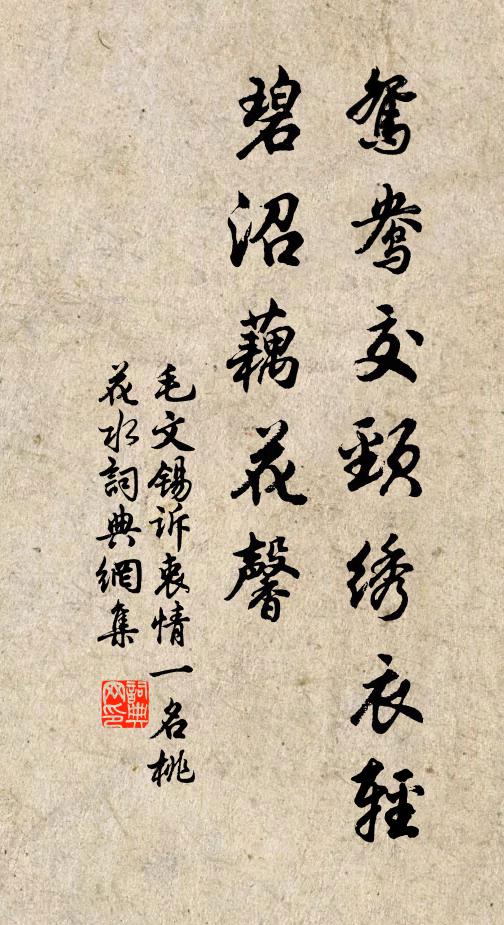 鴛鴦交頸绣衣輕
碧沼藕花馨
毛文锡訴衷情一名桃
花水詞典網集
詞典
网印